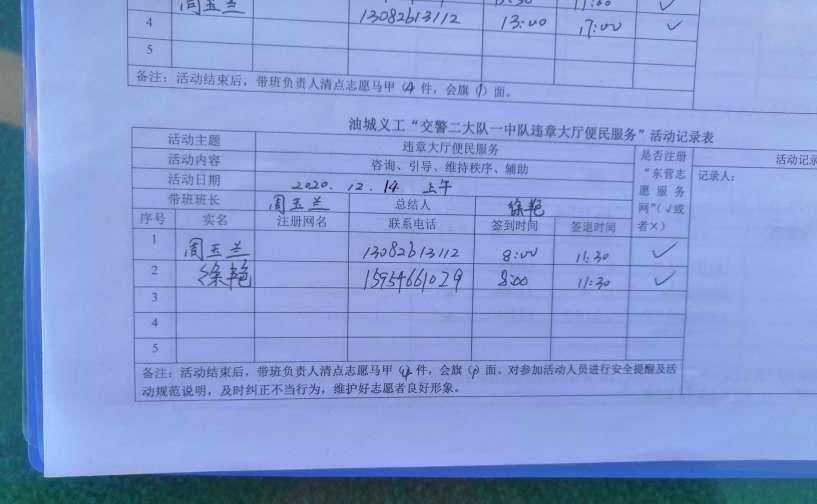 周玉兰
4 13082613112 13:00 17:00 ✓
5
备注：活动结束后，带班负责人清点志愿马甲（4件，会旗（1）面。
油城义工“交警二大队一中队违章大厅便民服务”活动记录表
活动主题 违章大厅便民服务 是否注册“东营志愿服务网”（√或者×） 活动记录
活动内容 咨询、引导、维持秩序、辅助 记录人：
活动日期 2020.12.14.上午
带班班长 周玉兰 总结人 徐艳
序号 实名 注册网名 联系电话 签到时间 签退时间
1 周玉兰 13082613112 8:00 11:30 ✓
2 徐艳 15954661029 8:00 11:30 ✓
3
4
5
备注：活动结束后，带班负责人清点志愿马甲（件，会旗（1）面。对参加活动人员进行安全提醒及活
动规范说明，及时纠正不当行为，维护好志愿者良好形象。